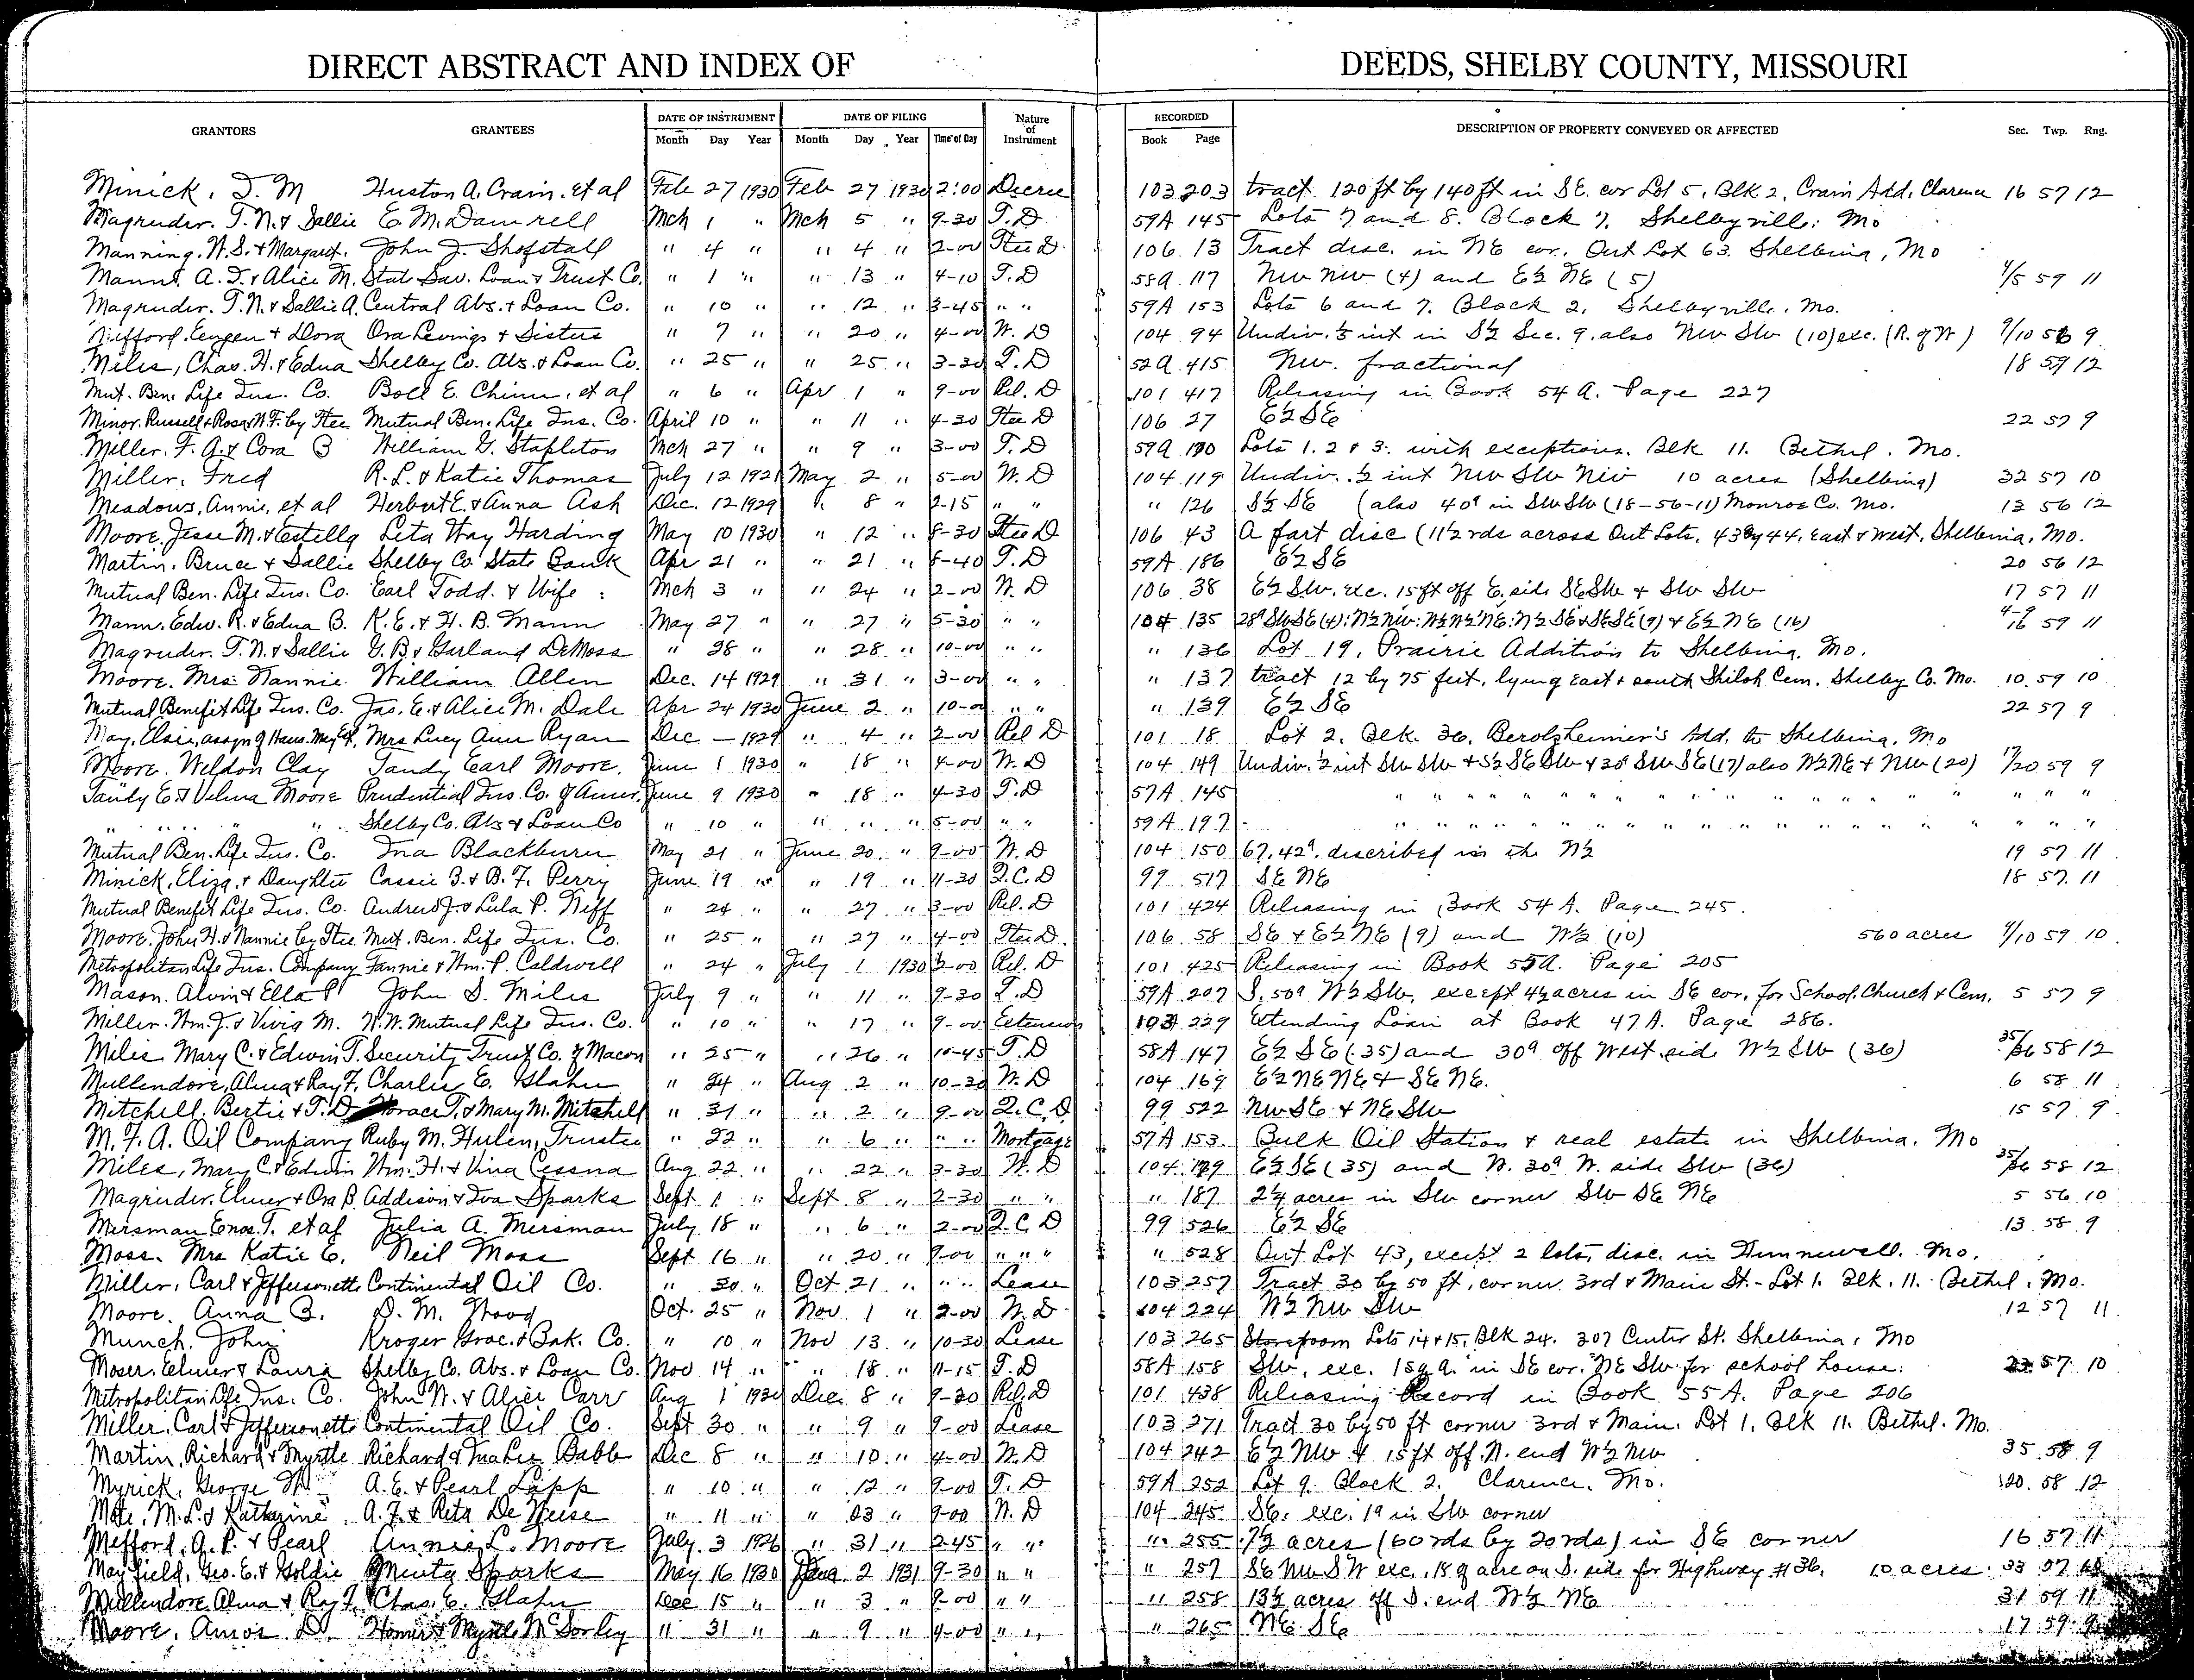 DIRECT ABSTRACT AND INDEX OF DEEDS, SHELBY COUNTY, MISSOURI
GRANTORS GRANTEES DATE OF INSTRUMENT Month Day Year DATE OF FILING Month Day Year Time of Day Nature of Instrument RECORDED Book Page DESCRIPTION OF PROPERTY CONVEYED OR AFFECTED Sec. Twp. Rng.
Minick, T. M Huston A. Crain, et al Feb 27 1930 Feb 27 1930 2:00 Decree 103 203 tract 120 ft by 140 ft in SE. cor Lot 5, Blk 2, Crain Add, Clarence 16 57 12
Magruder, T. N. & Sallie E. M. Damrell Mch 1 " Mch 5 " 9-30 T. D 59A 145 Lots 7 and 8. Block 7. Shelbyville, Mo
Manning, W. S. & Margaret. John J. Shofstall " 4 " " 4 " 2-00 Stee D. 106 13 Tract disc. in NE cor. Out Lot 63. Shelbina, Mo
Mann, A. T. & Alice M. Stat Sav. Loan & Trust Co. " 1 " " 13 " 4-10 T. D 58A 117 NW NW (4) and E½ NE (5) 4/5 59 11
Magruder, T. N. & Sallie A. Central Abs. & Loan Co. " 10 " " 12 " 3-45 " " 59A 153 Lots 6 and 7. Block 2, Shelbyville, Mo.
Mefford, Eugen & Dora Ora Levings & Sisters " 7 " " 20 " 4-00 W. D 104 94 Undiv. ⅕ int in S½ Sec. 9. also NW SW (10) exc. (R. of W) 9/10 56 9
Miles, Chas. H. & Edna Shelby Co. Abs. & Loan Co. " 25 " " 25 " 3-30 T. D 52A 415 NW. fractional 18 59 12
Mut. Ben. Life Ins. Co. Boll E. Chinn, et al " 6 " Apr 1 " 9-00 Rel. D 101 417 Releasing in Book 54 A. Page 227
Minor, Russell & Rosa, W. F. by Stee Mutual Ben. Life Ins. Co. April 10 " " 11 " 4-30 Stee D 106 27 E½ SE 22 57 9
Miller, F. A. & Cora B William G. Stapleton Mch 27 " " 9 " 3-00 T. D 59A 170 Lots 1. 2 & 3. with exceptions. Blk 11. Bethel. Mo.
Miller, Fred R. L. & Katie Thomas July 12 1921 May 2 " 5-00 W. D 104 119 Undiv. ½ int NW SW NW 10 acres (Shelbina) 32 57 10
Meadows, Annie, et al Herbert E. & Anna Ash Dec. 12 1929 " 8 " 2-15 " " " 126 S½ SE (also 40a in SW SW (18-56-11) Monroe Co. Mo. 13 56 12
Moore, Jesse M. & Estella Leta Way Harding May 10 1930 " 12 " 8-30 Stee D 106 43 A part disc (11½ rds across Out Lots, 43 by 44, East & West, Shelbina, Mo.
Martin, Bruce & Sallie Shelby Co State Bank Apr 21 " " 21 " 8-40 T. D 59A 186 E½ SE 20 56 12
Mutual Ben. Life Ins. Co. Earl Todd. & Wife Mch 3 " " 24 " 2-00 W. D 106 38 E½ SW. exc. 15 ft off E. side SE SW & SW SW 17 57 11
Mann, Edw. R. & Edna B. K. E. & H. B. Mann May 27 " " 27 " 5-30 " " 104 135 28a SW SE (4); N½ NW; N½ N½ NE; N½ SE & SE SE (9) & E½ NE (16) 4-9 16 59 11
Magruder, T. N. & Sallie G. B. & Garland DeMoss " 28 " " 28 " 10-00 " " " 136 Lot 19, Prairie Addition to Shelbina, Mo.
Moore, Mrs. Nannie William Allen Dec. 14 1929 " 31 " 3-00 " " " 137 tract 12 by 75 feet, lying East & south Shiloh Cem. Shelby Co. Mo. 10 59 10
Mutual Benefit Life Ins. Co. Jas. E. & Alice M. Dale Apr 24 1930 June 2 " 10-00 " " " 139 E½ SE 22 57 9
May, Elsie, assgn of Mrs Lucy Ann Ryan Dec — 1929 " 4 " 2-00 Rel D 101 18 Lot 2, Blk. 36, Berolzheimer's Add. to Shelbina, Mo
Moore, Weldon Clay Tandy Earl Moore. June 1 1930 " 18 " 4-00 W. D 104 149 Undiv. ½ int SW SW & S½ SE SW & 30a SW SE (17) also N½ NE & NW (20) 17/20 59 9
Tandy E. & Velma Moore Prudential Ins. Co. of Amer. June 9 1930 " 18 " 4-30 T. D 57A 145 " " " " " " " " " "
" " " " Shelby Co. Abs & Loan Co " 10 " " " " 5-00 " " 59A 197 " " " " " " " " " "
Mutual Ben. Life Ins. Co. Ina Blackburn May 21 " June 20 " 9-00 W. D 104 150 67.42a. described in the N½ 19 57 11
Minick, Eliza, & Daughter Cassie B. & B. F. Perry June 19 " " 19 " 11-30 Q. C. D 99 517 SE NE 18 57 11
Mutual Benefit Life Ins. Co. Andrew J. & Lula P. Neff " 24 " " 27 " 3-00 Rel. D 101 424 Releasing in Book 54 A. Page 245.
Moore, John H. & Nannie by Stee Mut. Ben. Life Ins. Co. " 25 " " 27 " 4-00 Stee D. 106 58 SE & E½ NE (9) and W½ (10) 560 acres 9/10 59 10
Metropolitan Life Ins. Company Fannie & Wm. P. Caldwell " 24 " July 1 1930 2-00 Rel. D 101 425 Releasing in Book 55A. Page 205
Mason, Alvin & Ella P John S. Miles July 9 " " 11 " 9-30 T. D 59A 207 S. 50a W½ SW, except 4½ acres in SE cor. for School, Church & Cem. 5 57 9
Miller, Wm. J. & Vivia M. N. W. Mutual Life Ins. Co. " 10 " " 17 " 9-00 Extension 103 229 Extending Loan at Book 47 A. Page 286.
Miles Mary C. & Edwin T. Security Trust Co. of Macon " 25 " " 26 " 10-45 T. D 58A 147 E½ SE (35) and 30a off West side W½ SW (36) 35/36 58 12
Mullendore, Alma & Ray F. Charlie E. Hahn " 24 " Aug 2 " 10-30 W. D 104 169 E½ NE NE & SE NE. 6 58 11
Mitchell, Bertie & T. D Horace T. & Mary M. Mitchell " 31 " " 2 " 9-00 Q. C. D 99 522 NW SE & NE SW 15 57 9
M. F. A. Oil Company Ruby M. Hulen, Trustee " 22 " " 6 " " " Mortgage 57A 153 Bulk Oil Station & real estate in Shelbina, Mo
Miles, Mary C. & Edwin Wm. H. & Vina Cessna Aug 22 " " 22 " 3-30 W. D 104 179 E½ SE (35) and W. 30a W. side SW (36) 35/36 58 12
Magruder, Elmer & Ora B. Addison & Iva Sparks Sept 1 " Sept 8 " 2-30 " " " 187 2¼ acres in SW corner SW SE NE 5 56 10
Mersman, Enos T. et al Julia A. Mersman July 18 " " 6 " 2-00 Q. C. D 99 526 E½ SE 13 58 9
Moss, Mrs Katie E. Neil Moss Sept 16 " " 20 " 9-00 " " " " 528 Out Lot 43, except 2 lots, disc. in Hunnewell. Mo.
Miller, Carl & Jeffersonette Continental Oil Co. " 30 " Oct 21 " " " Lease 103 257 Tract 30 by 50 ft, corner 3rd & Main St. - Lot 1. Blk. 11. Bethel, Mo.
Moore, Anna B. D. M. Wood Oct. 25 " Nov 1 " 2-00 W. D 104 224 W½ NW SW 12 57 11
Munch, John Kroger Groc. & Bak. Co. " 10 " Nov 13 " 10-30 Lease 103 265 Storeroom Lots 14 & 15, Blk 24. 307 Center St. Shelbina, Mo
Moser, Elmer & Laura Shelby Co. Abs. & Loan Co. Nov 14 " " 18 " 11-15 T. D 58A 158 SW, exc. 1 sq a. in SE cor. NE SW for school house. 57 10
Metropolitan Life Ins. Co. John W. & Alice Carr Aug 1 1930 Dec 8 " 9-30 Rel. D 101 438 Releasing Record in Book 55 A. Page 206
Miller, Carl & Jeffersonette Continental Oil Co. Sept 30 " " 9 " 9-00 Lease 103 271 Tract 30 by 50 ft corner 3rd & Main, Lot 1, Blk 11. Bethel. Mo.
Martin, Richard & Myrtle Richard & Babb Dec 8 " " 10 " 4-00 W. D 104 242 E½ NW & 15 ft off N. end W½ NW 35 58 9
Myrick, George W. A. E. & Pearl Lapp " 10 " " 12 " 9-00 T. D 59A 252 Lot 9. Block 2. Clarence, Mo. 20 58 12
M. L. & Katharine A. F. & Reta De Weese " 11 " " 23 " 9-00 W. D 104 245 SE. exc. 1a in SW corner
Mefford, A. P. & Pearl Annie L. Moore July 3 1926 " 31 " 2-45 " " " 255 7½ acres (60 rds by 20 rds) in SE corner 16 57 11
Mayfield, Geo. E. & Goldie Minta Sparks May 16 1930 Jan. 2 1931 9-30 " " " 257 SE NW SW exc. .18 of acre on S. side for Highway #36. 10 acres 33 57
Mullendore, Alma & Ray F. Chas. E. Hahn Dec 15 " " 3 " 9-00 " " " 258 13½ acres off S. end W½ NE 31 59 11
Moore, Amos D. Homer & Myrtle McSorley " 31 " " 9 " 4-00 " " " 265 NE SE 17 59 9